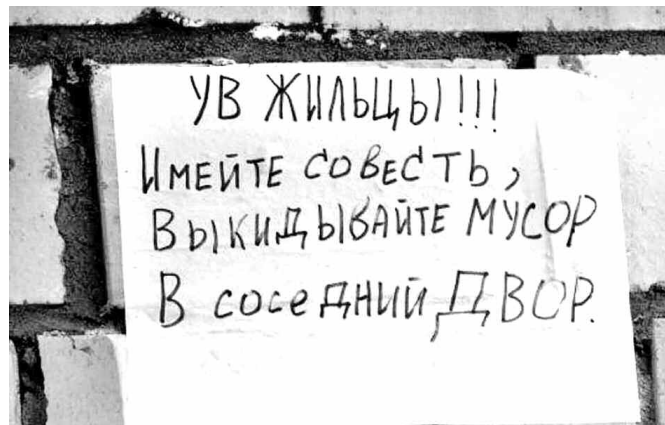 УВ ЖИЛЬЦЫ!!!
Имейте совесть,
Выкидывайте мусор
В соседний двор.